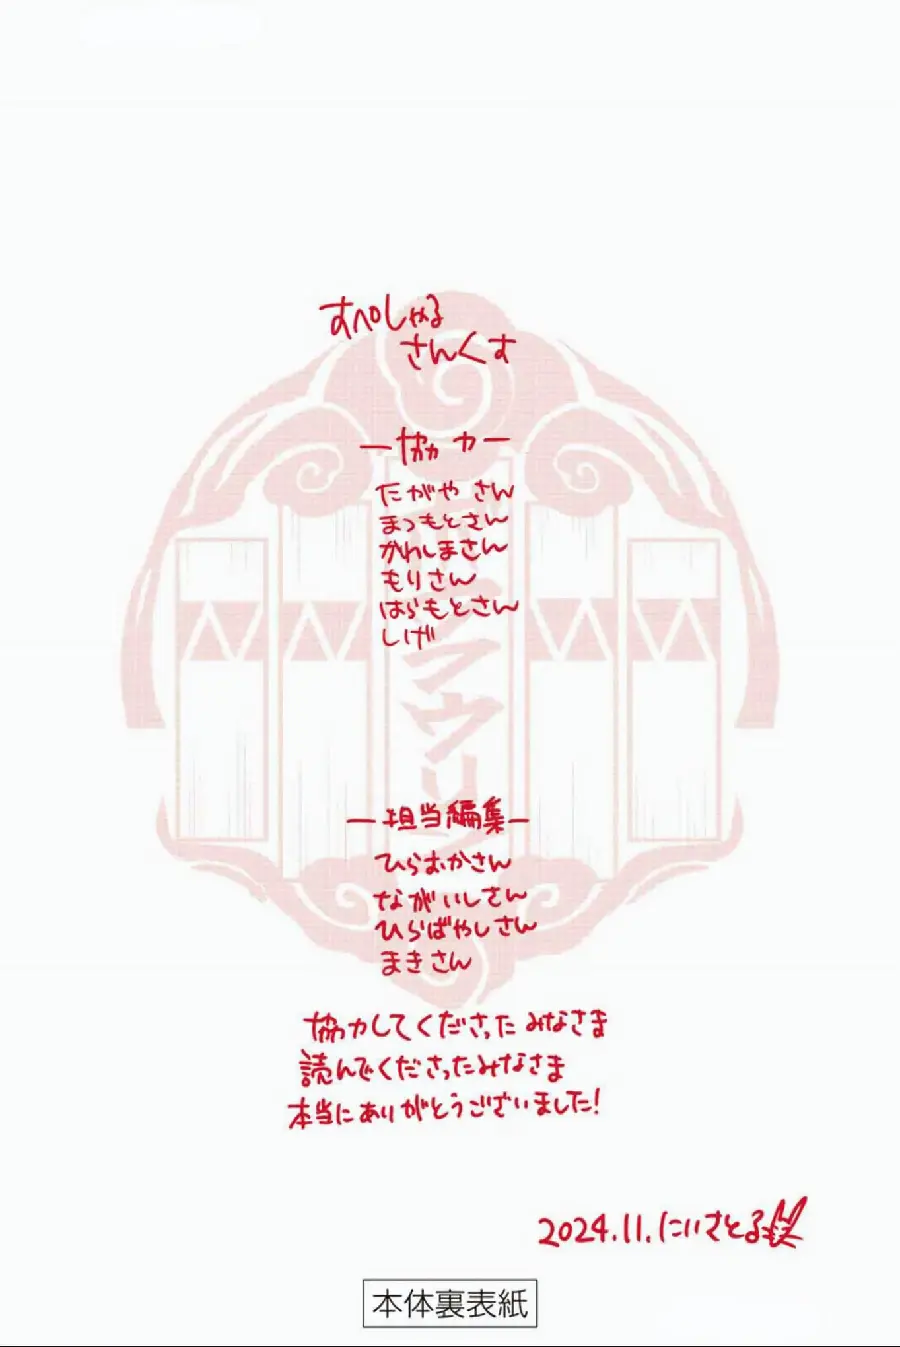 すぺしゃる
さんくす
ー協力ー
たがやさん
まつもとさん
かわしまさん
もりさん
はらもとさん
しげ
アンデッドアンラック
ー担当編集ー
ひらおかさん
ながいしさん
ひらばやしさん
まきさん
協力してくださったみなさま
読んでくださったみなさま
本当にありがとうございました!
2024.11.にいさとる
本体裏表紙